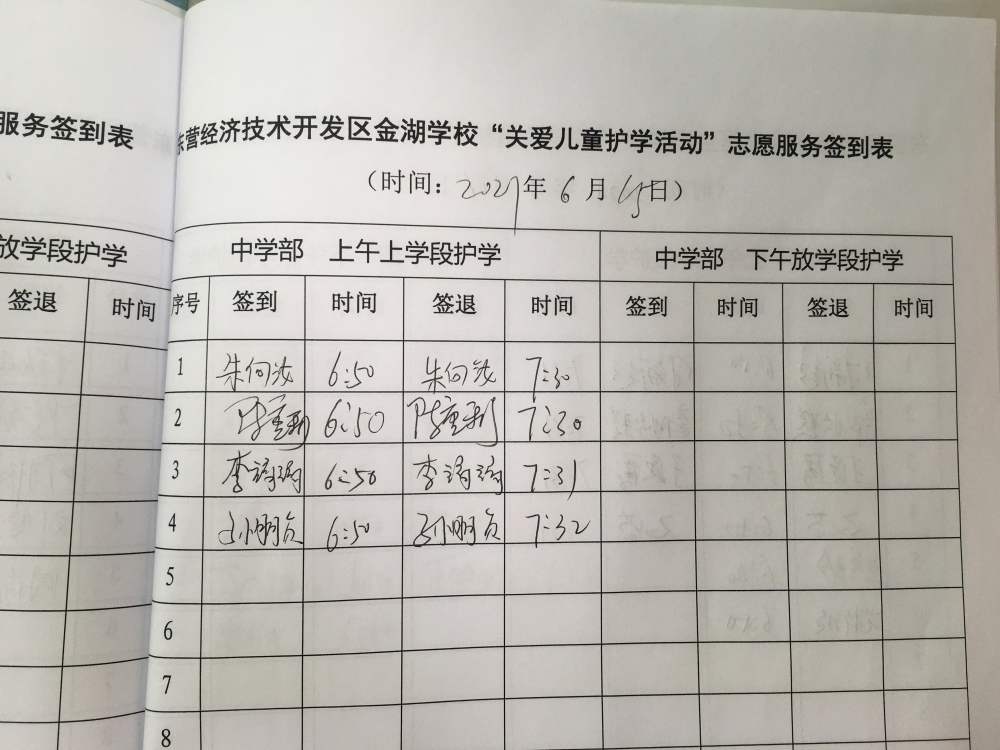 服务签到表
东营经济技术开发区金湖学校“关爱儿童护学活动”志愿服务签到表
（时间：2021年 6 月 15日）
放学段护学
签退 时间
中学部 上午上学段护学 中学部 下午放学段护学
序号 签到 时间 签退 时间 签到 时间 签退 时间
1 朱向 6:50 朱向 7:30
2 陈 6:50 陈 7:30
3 李 6:50 李 7:31
4 6:50 7:32
5
6
7
8